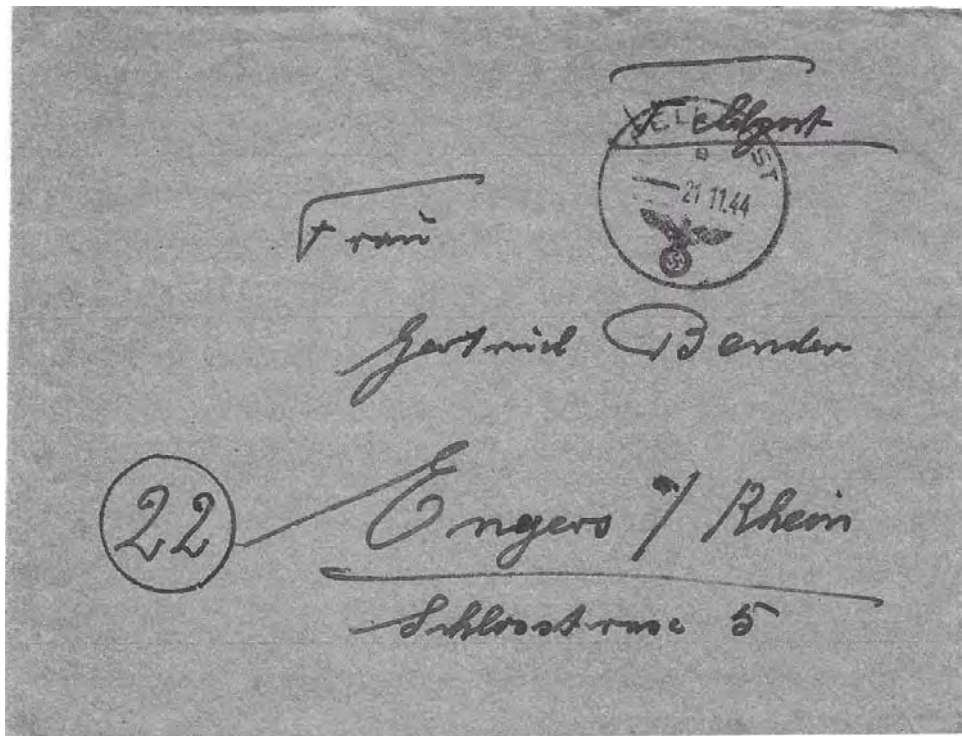 Feldpost
FELDPOST
a
21.11.44
Frau
Gertrud Bender
22 Engers a/ Rhein
Schlosstrase 5